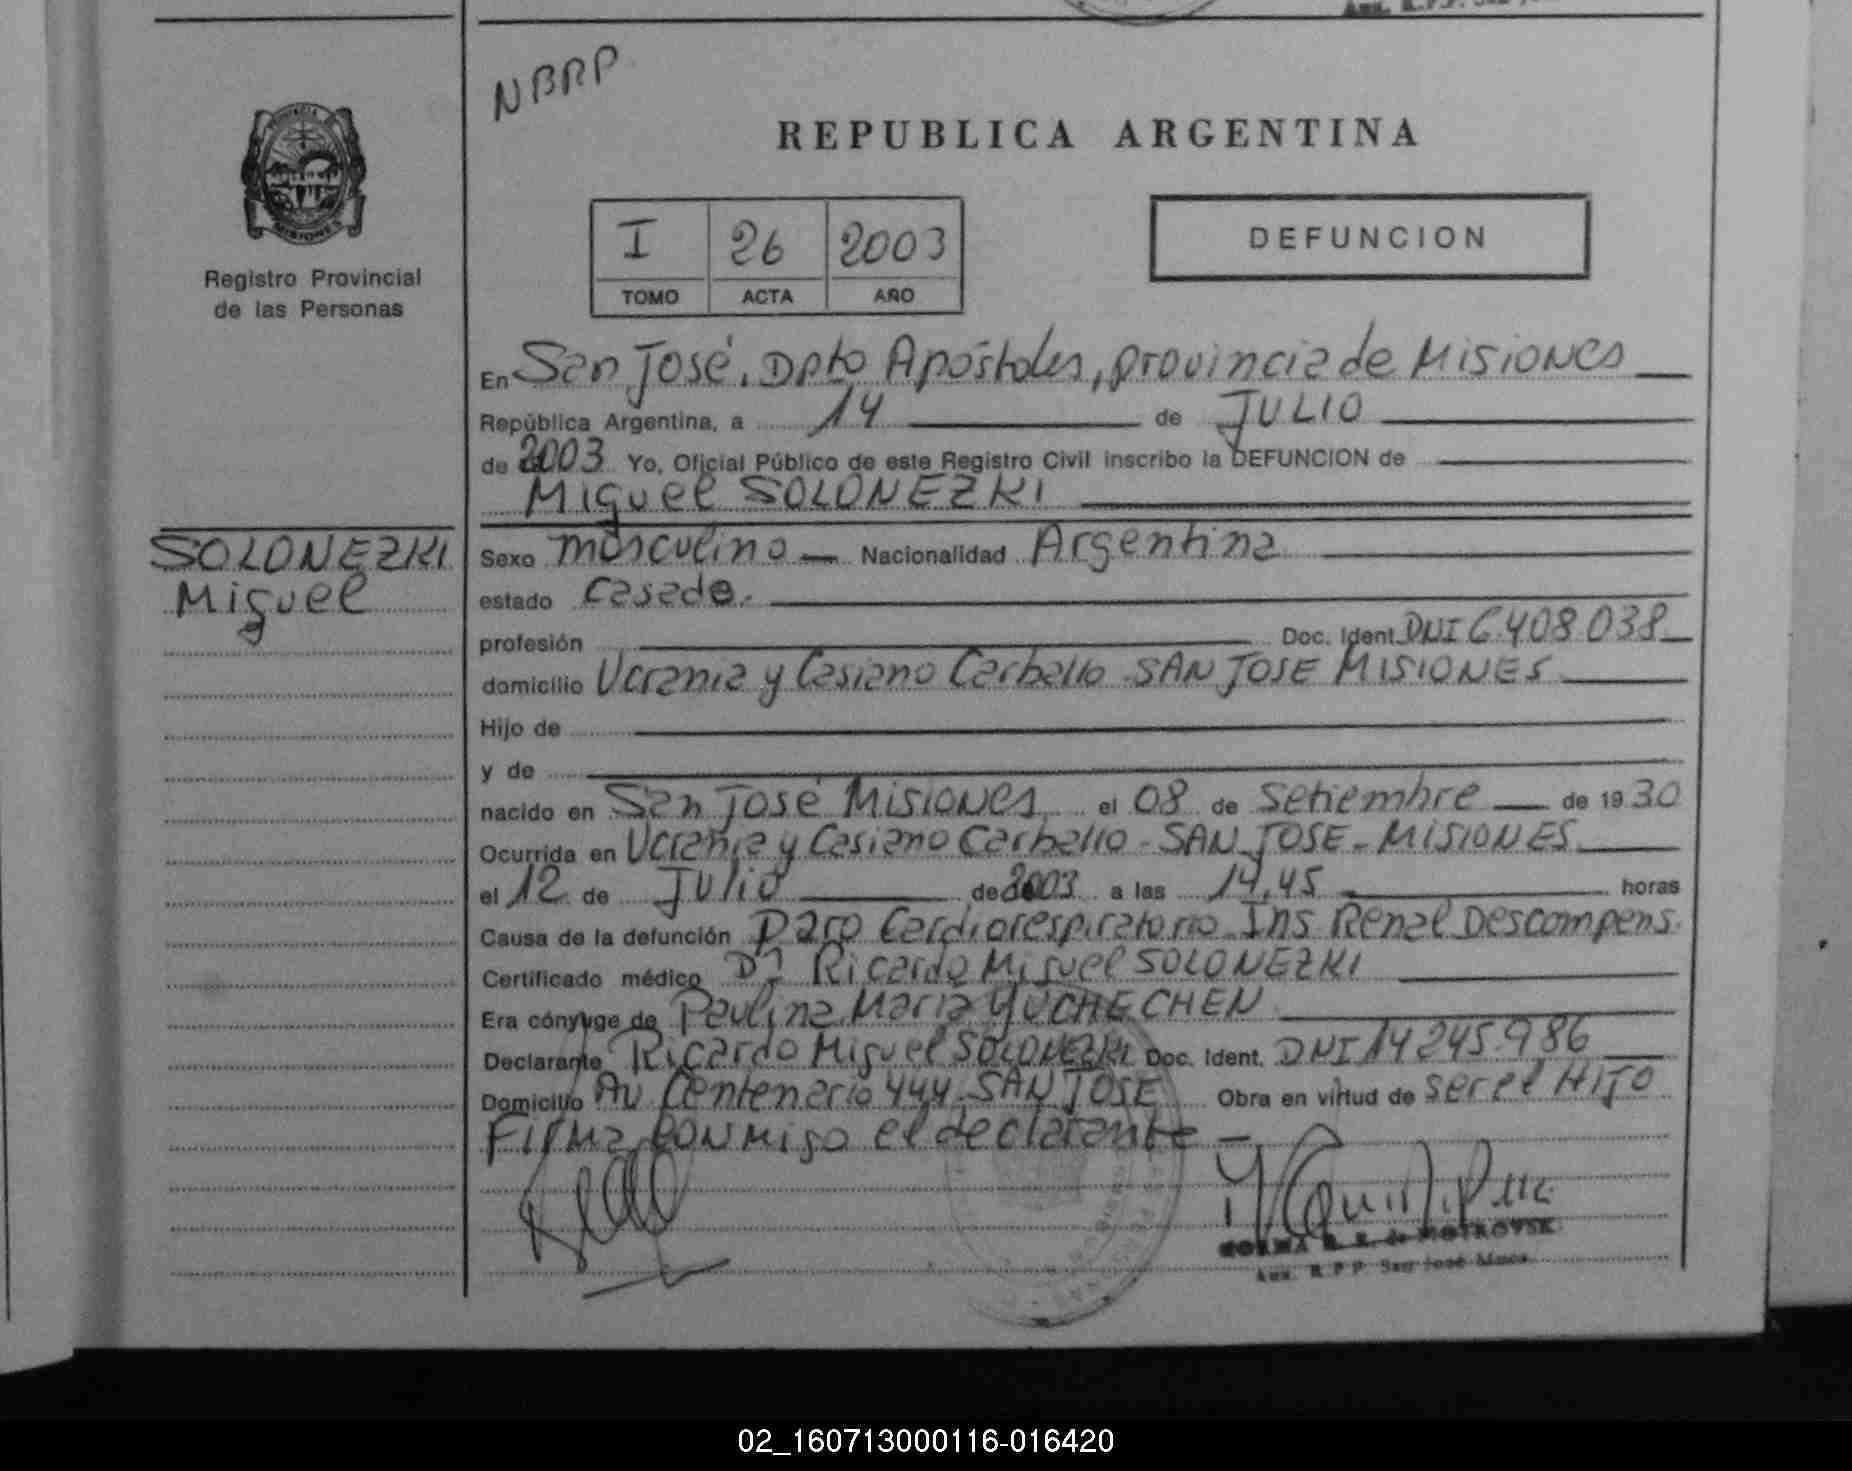 NBRP
REPUBLICA ARGENTINA
Registro Provincial
de las Personas
I 26 2003
TOMO ACTA AÑO
DEFUNCION
En San José, Dpto Apóstoles, provincia de Misiones
República Argentina, a 14 de JULIO
de 2003 Yo, Oficial Público de este Registro Civil inscribo la DEFUNCION de
Miguel SOLONEZKI
SOLONEZKI
Miguel
Sexo masculino Nacionalidad Argentina
estado Casado.
profesión Doc. Ident. DNI 6.408.038
domicilio Ucrania y Casiano Carballo - SAN JOSE MISIONES
Hijo de
y de
nacido en San José Misiones el 08 de Setiembre de 1930
Ocurrida en Ucrania y Casiano Carballo - SAN JOSE - MISIONES
el 12 de Julio de 2003 a las 14,45 horas
Causa de la defunción Paro Cardiorespiratorio Ins Renal Descompens.
Certificado médico Dr Ricardo Miguel SOLONEZKI
Era cónyuge de Paulina Maria YUCHECHEN
Declarante Ricardo Miguel SOLONEZKI Doc. Ident. DNI 14245.986
Domicilio Av Centenario 444 SAN JOSE Obra en virtud de ser el HIJO
Firma conmigo el declarante
NORMA de PIOTROVSKI
Aux. R.P.P. San José Mnes.
02_160713000116-016420